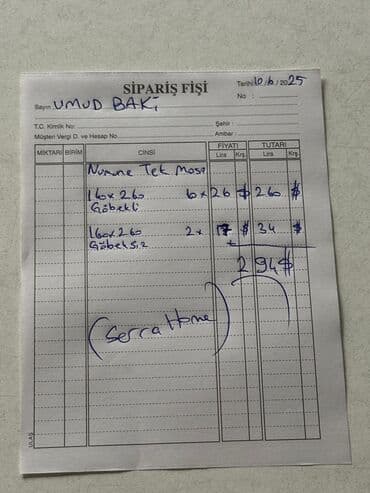 SİPARİŞ FİŞİ
Tarihi 10/6/2025
No :
Sayın UMUD BAKİ
T.C. Kimlik No:
Şehir :
Müşteri Vergi D. ve Hesap No
Ambar :
MİKTARI BİRİM CİNSİ FİYATI TUTARI
Lira Krş. Lira Krş.
Numune Tek Masa
160x260 6 x 26 $ 260 $
Göbekli
160x260 2 x 17 $ 34 $
Göbeksiz
294 $
(Serra Home)
ULAŞ